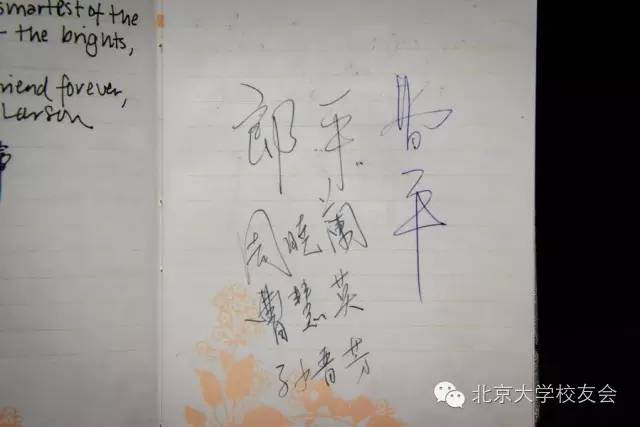 smartest of the
the brights,
riend forever,
Larson
郎平
周曉蘭
曹慧英
孙晋芳
平
北京大学校友会